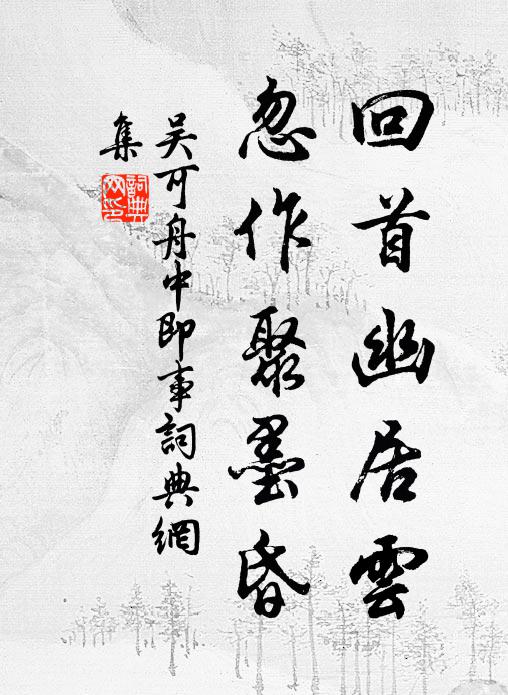 回首幽居雲
忽作聚墨昏
吴可舟中即事詞典網
集
詞典网印